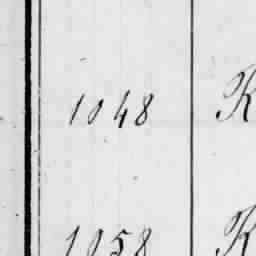 1048 K
1058 K